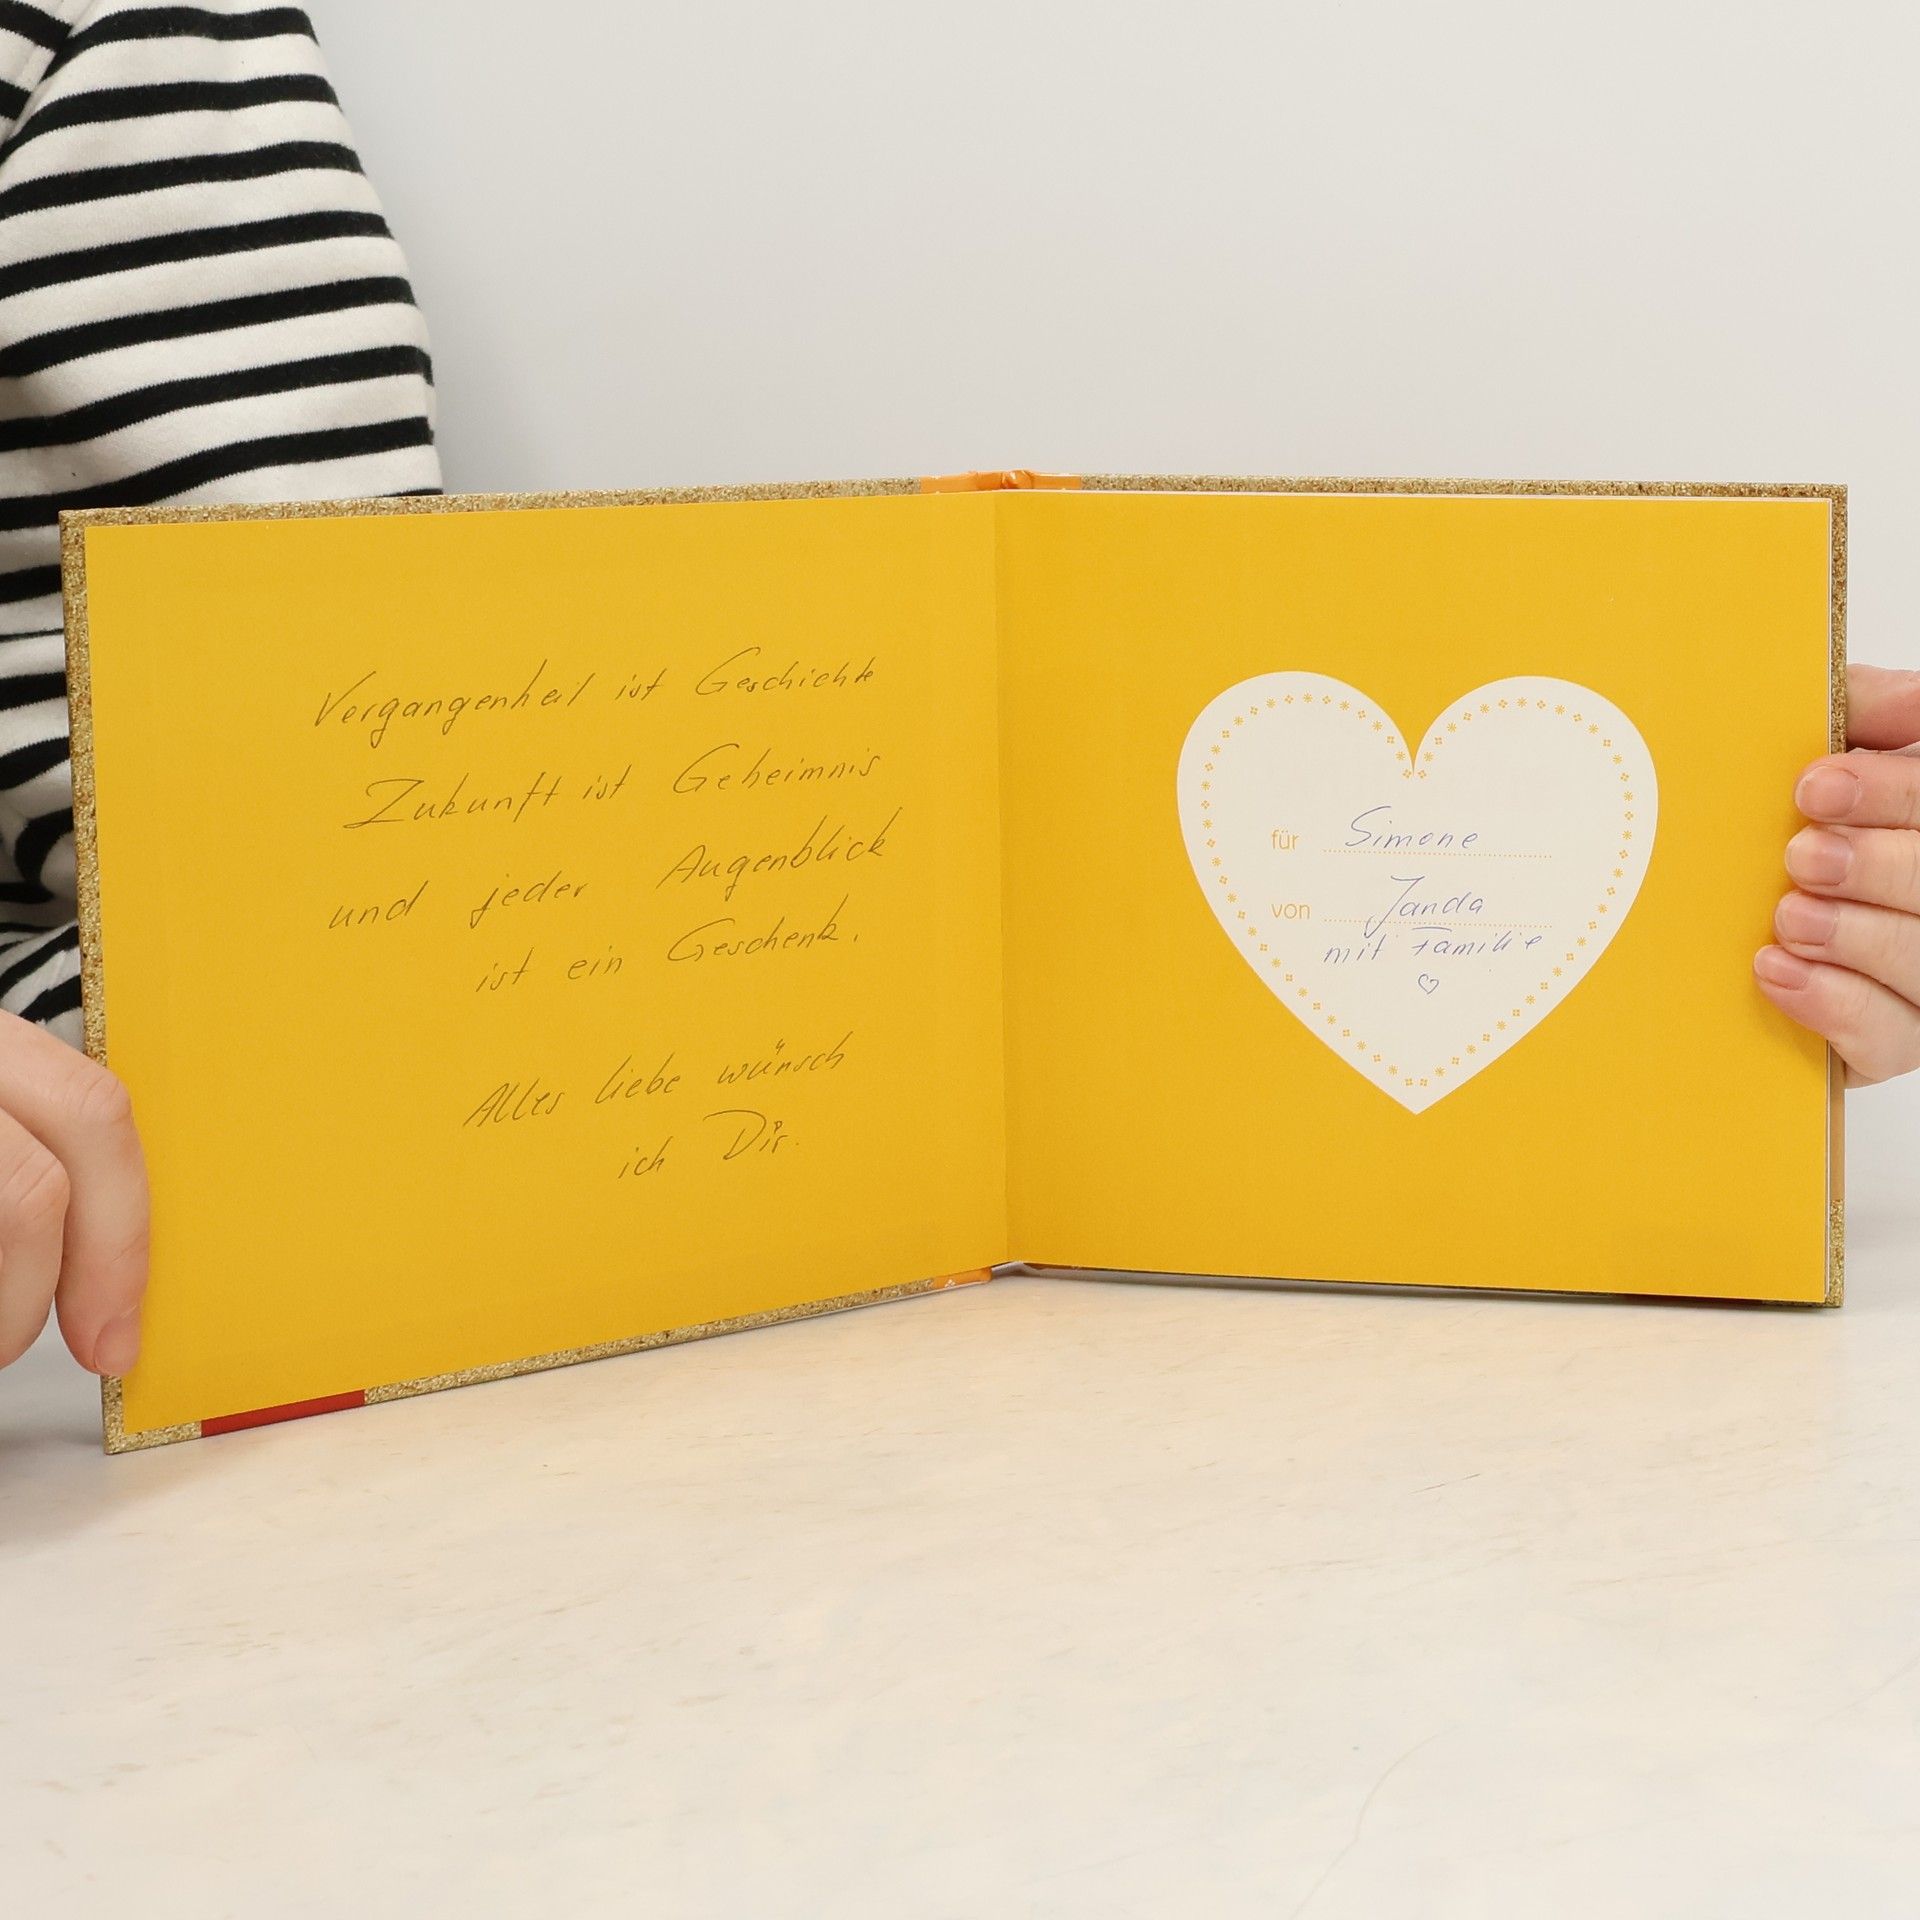 Vergangenheit ist Geschichte
Zukunft ist Geheimnis
und jeder Augenblick
ist ein Geschenk.
Alles liebe wünsch
ich Dir.
für Simone
von Janda
mit Familie